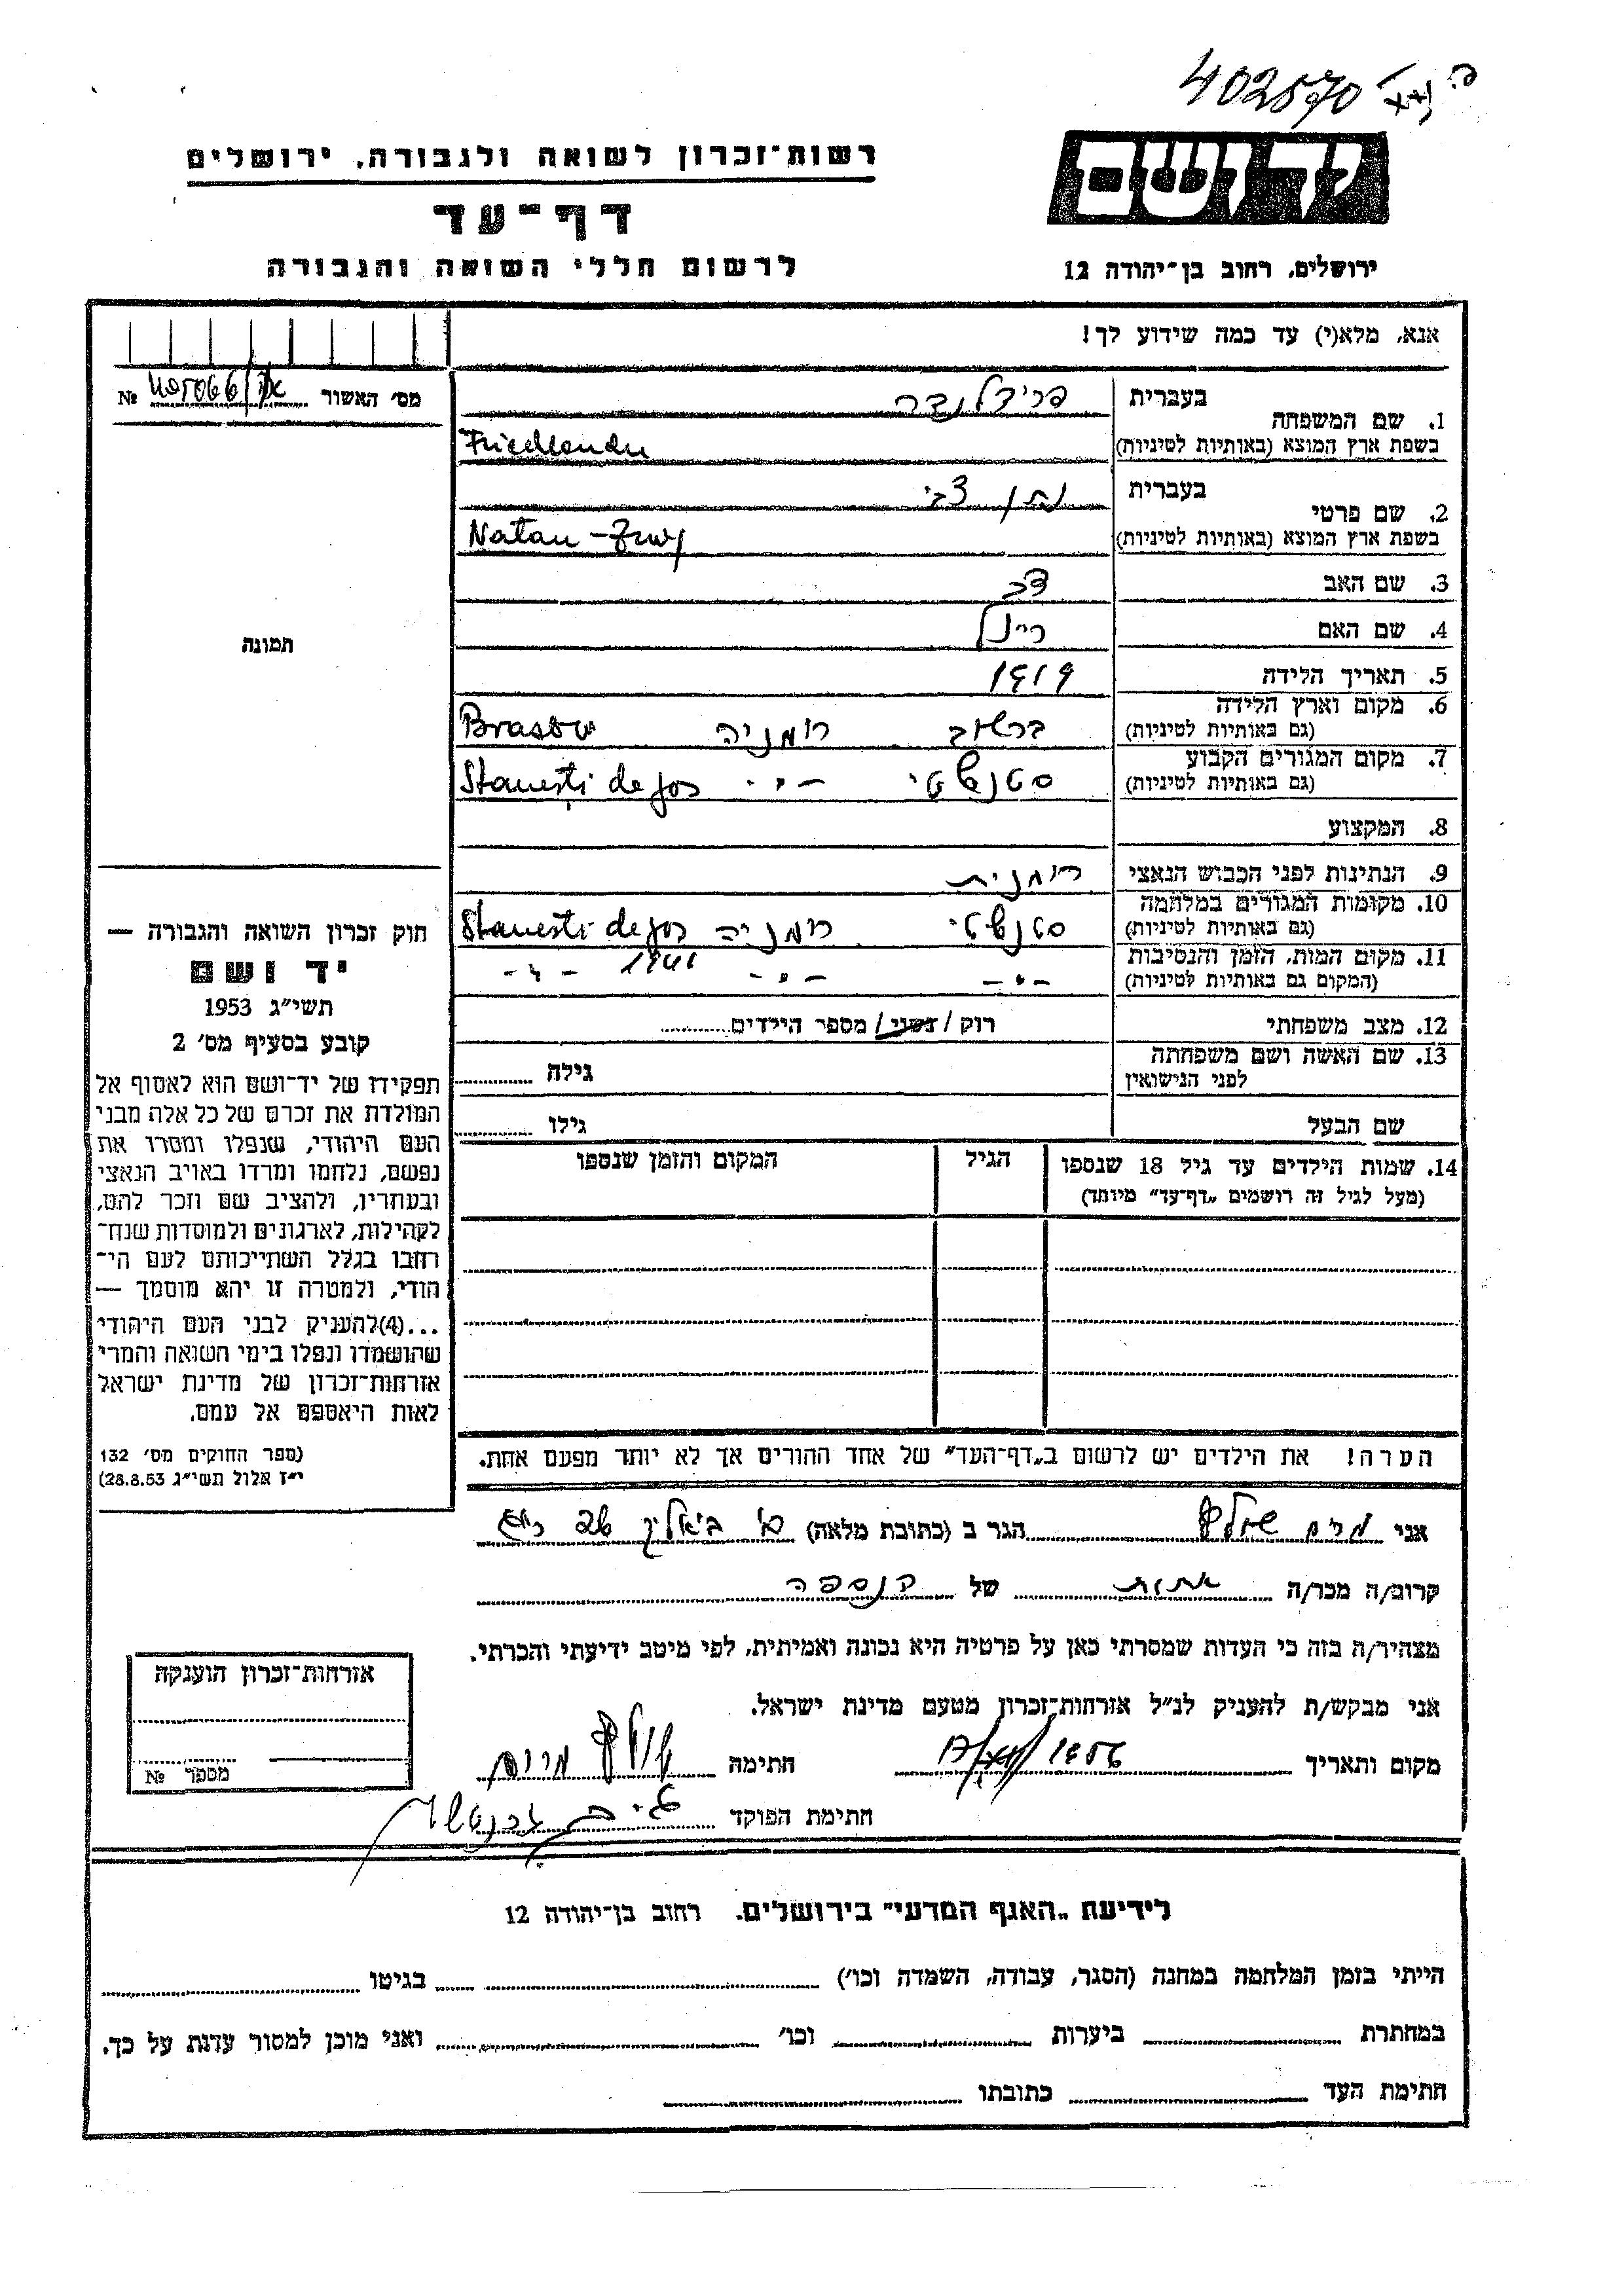 402570
רשות־זכרון לשואה ולגבורה, ירושלים
יד ושם
דף־עד
לרשום חללי השואה והגבורה
ירושלים, רחוב בן־יהודה 12
אנא, מלא(י) עד כמה שידוע לך!
מס׳ האשור № 
1. שם המשפחה
בעברית פרידלנדר
בשפת ארץ המוצא (באותיות לטיניות) Friedlander
2. שם פרטי
בעברית נתן צבי
בשפת ארץ המוצא (באותיות לטיניות) Natan -
3. שם האב
4. שם האם ריינל
5. תאריך הלידה 1919
6. מקום וארץ הלידה
(גם באותיות לטיניות) ברשוב רומניה Brasov
7. מקום המגורים הקבוע
(גם באותיות לטיניות) סטנשטי -״- Stanești de jos
8. המקצוע
9. הנתינות לפני הכבוש הנאצי רומנית
10. מקומות המגורים במלחמה
(גם באותיות לטיניות) סטנשטי רומניה Stanesti de jos
11. מקום המות, הזמן והנסיבות
(המקום גם באותיות לטיניות) -״- -״- 1941 -״-
12. מצב משפחתי רוק / נשוי / מספר הילדים
13. שם האשה ושם משפחתה
לפני הנישואין גילה
שם הבעל גילו
14. שמות הילדים עד גיל 18 שנספו
(מעל לגיל זה רושמים „דף־עד״ מיוחד)
הגיל
המקום והזמן שנספו
תמונה
חוק זכרון השואה והגבורה —
יד ושם
תשי״ג 1953
קובע בסעיף מס׳ 2
תפקידו של יד־ושם הוא לאסוף אל
המולדת את זכרם של כל אלה מבני
העם היהודי, שנפלו ומסרו את
נפשם, נלחמו ומרדו באויב הנאצי
ובעוזריו, ולהציב שם וזכר להם,
לקהילות, לארגונים ולמוסדות שנח־
רחבו בגלל השתייכותם לעם הי־
הודי, ולמטרה זו יהא מוסמך —
...(4)להעניק לבני העם היהודי
שהושמדו ונפלו בימי השואה והמרי
אזרחות־זכרון של מדינת ישראל
לאות היאספם אל עמם.
(ספר החוקים מס׳ 132
י״ז אלול תשי״ג 28.8.53)
הערה! את הילדים יש לרשום ב„דף־העד״ של אחד ההורים אך לא יותר מפעם אחת.
אני מרים הגר ב (כתובת מלאה) ביאליק
קרוב/ה מכר/ה אחות של הנספה
מצהיר/ה בזה כי העדות שמסרתי כאן על פרטיה היא נכונה ואמיתית, לפי מיטב ידיעתי והכרתי.
אני מבקש/ת להעניק לנ״ל אזרחות־זכרון מטעם מדינת ישראל.
מקום ותאריך 1956 חתימה מרים
חתימת הפוקד
אזרחות־זכרון הוענקה
מספר №
לידיעת „האגף המדעי״ בירושלים. רחוב בן־יהודה 12
הייתי בזמן המלחמה במחנה (הסגר, עבודה, השמדה וכו׳) בגיטו
במחתרת ביערות וכו׳ ואני מוכן למסור עדות על כך.
חתימת העד כתובתו